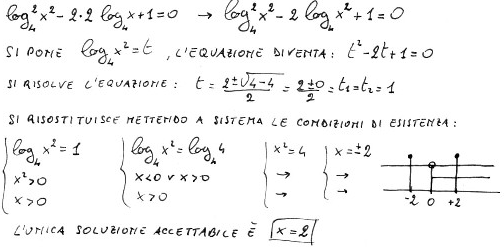 log₄²x² - 2·2 log₄x + 1 = 0 → log₄²x² - 2 log₄x² + 1 = 0
SI PONE log₄x² = t , L'EQUAZIONE DIVENTA: t² - 2t + 1 = 0
SI RISOLVE L'EQUAZIONE: t = (2±√(4-4))/2 = (2±0)/2 = t₁ = t₂ = 1
SI RISOSTITUISCE METTENDO A SISTEMA LE CONDIZIONI DI ESISTENZA:
{ log₄x² = 1 { log₄x² = log₄4 { x² = 4 { x = ±2
x² > 0 x < 0 ∨ x > 0 → →
x > 0 x > 0 → →
-2 0 +2
L'UNICA SOLUZIONE ACCETTABILE È x = 2